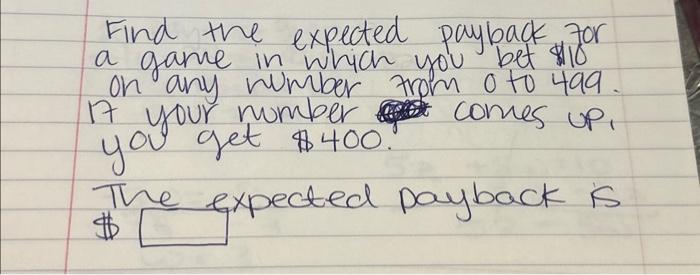 Find the expected payback for
a game in which you bet $10
on any number from 0 to 499.
If your number comes up,
you get $400.
The expected payback is
$